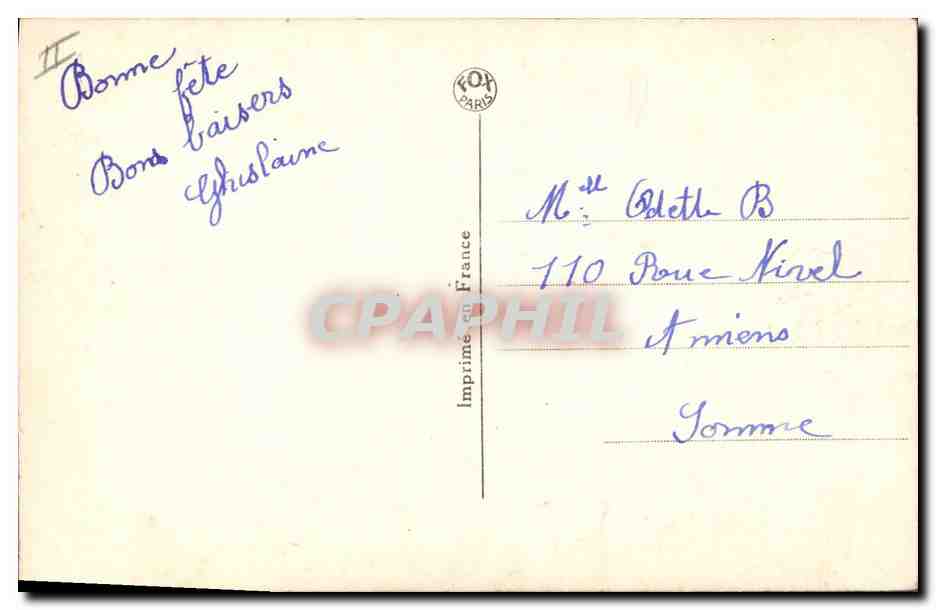 II
Bonne
fête
Bons baisers
Ghislaine
FOX
PARIS
Imprimé en France
CPAPHIL
Melle Odette B
110 Rue Nivel
Amiens
Somme